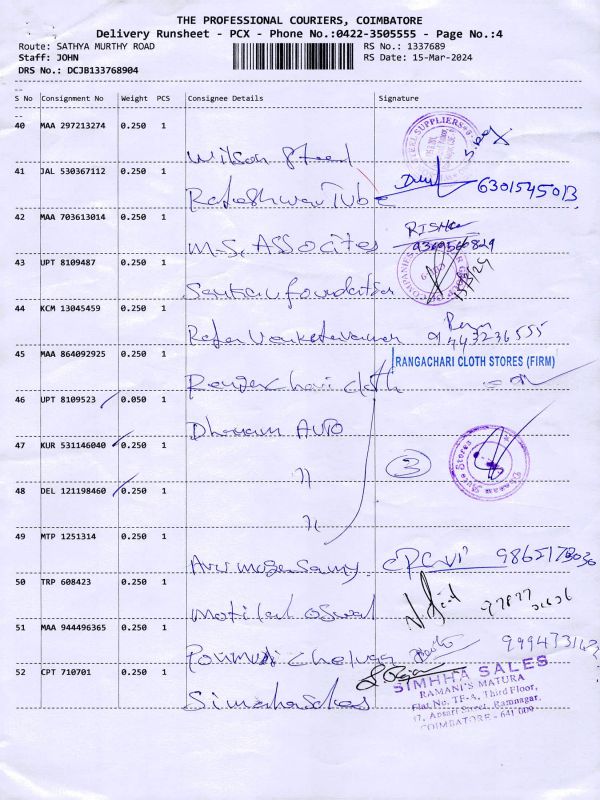 THE PROFESSIONAL COURIERS, COIMBATORE
Delivery Runsheet - PCX - Phone No.:0422-3505555 - Page No.:4
Route: SATHYA MURTHY ROAD
RS No.: 1337689
Staff: JOHN
RS Date: 15-Mar-2024
DRS No.: DCJB133768904
S No Consignment No Weight PCS Consignee Details Signature
40 MAA 297213274 0.250 1
Wilson Steel
STEEL SUPPLIERS
41 JAL 530367112 0.250 1
Rajeshwari Tube 6301545013
42 MAA 703613014 0.250 1
M.S. ASSocites
9369566829
43 UPT 8109487 0.250 1
foundation 15/3/24
44 KCM 13045459 0.250 1
9443236555
45 MAA 864092925 0.250 1
RANGACHARI CLOTH STORES (FIRM)
Rangachari cloth
46 UPT 8109523 0.050 1
Dharam AUTO
47 KUR 531146040 0.250 1
11
3
Auto Stores
48 DEL 121198460 0.250 1
49 MTP 1251314 0.250 1
Arumugasamy
50 TRP 608423 0.250 1
Motilal oswal
51 MAA 944496365 0.250 1
52 CPT 710701 0.250 1
Simhasales
SIMHHA SALES
RAMANI'S MATURA
Flat No. TF-A, Third Floor,
17, Ansari Street, Ramnagar,
COIMBATORE - 641 009